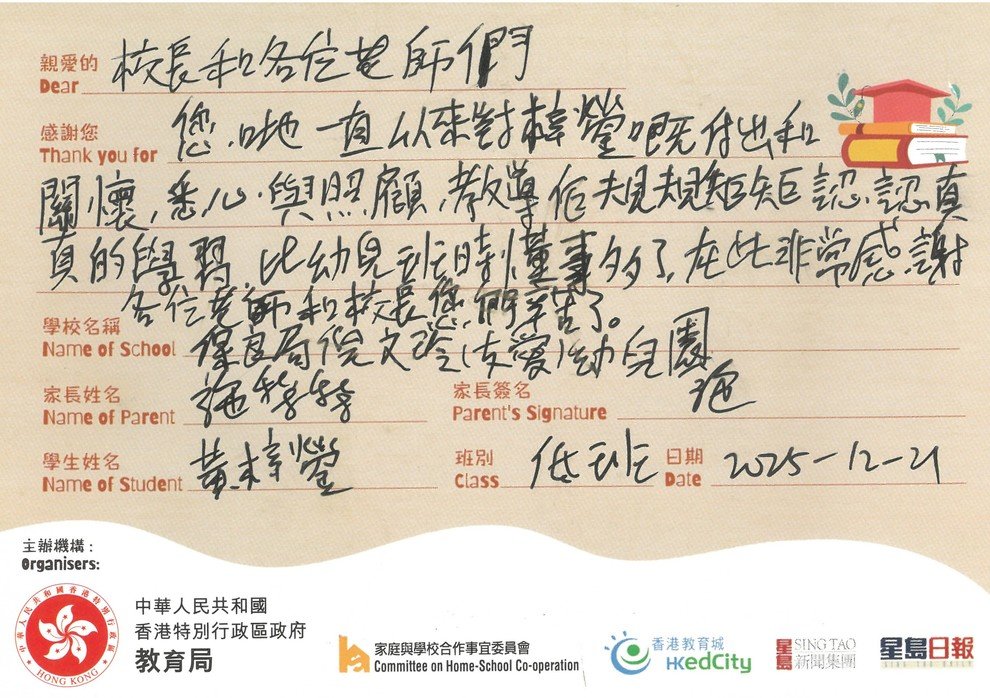 親愛的 校長和各位老師們
Dear
感謝您 您哋一直以來對梓瑩嘅付出和
Thank you for
關懷,悉心與照顧,教導佢規規矩矩認認真
真的學習,比幼兒班時懂事多了,在此非常感謝
各位老師和校長您們辛苦了。
學校名稱
Name of School 保良局倪文玲(友愛)幼兒園
家長姓名 家長簽名
Name of Parent 施 Parent's Signature 施
學生姓名 班別 低班 日期 2025-12-21
Name of Student 黃梓瑩 Class Date
主辦機構:
Organisers:
中華人民共和國
香港特別行政區政府
教育局
中華人民共和國香港特別行政區
HONG KONG
家庭與學校合作事宜委員會
Committee on Home-School Co-operation
香港教育城
HKedCity
星島 SING TAO
新聞集團
星島日報
SING TAO DAILY